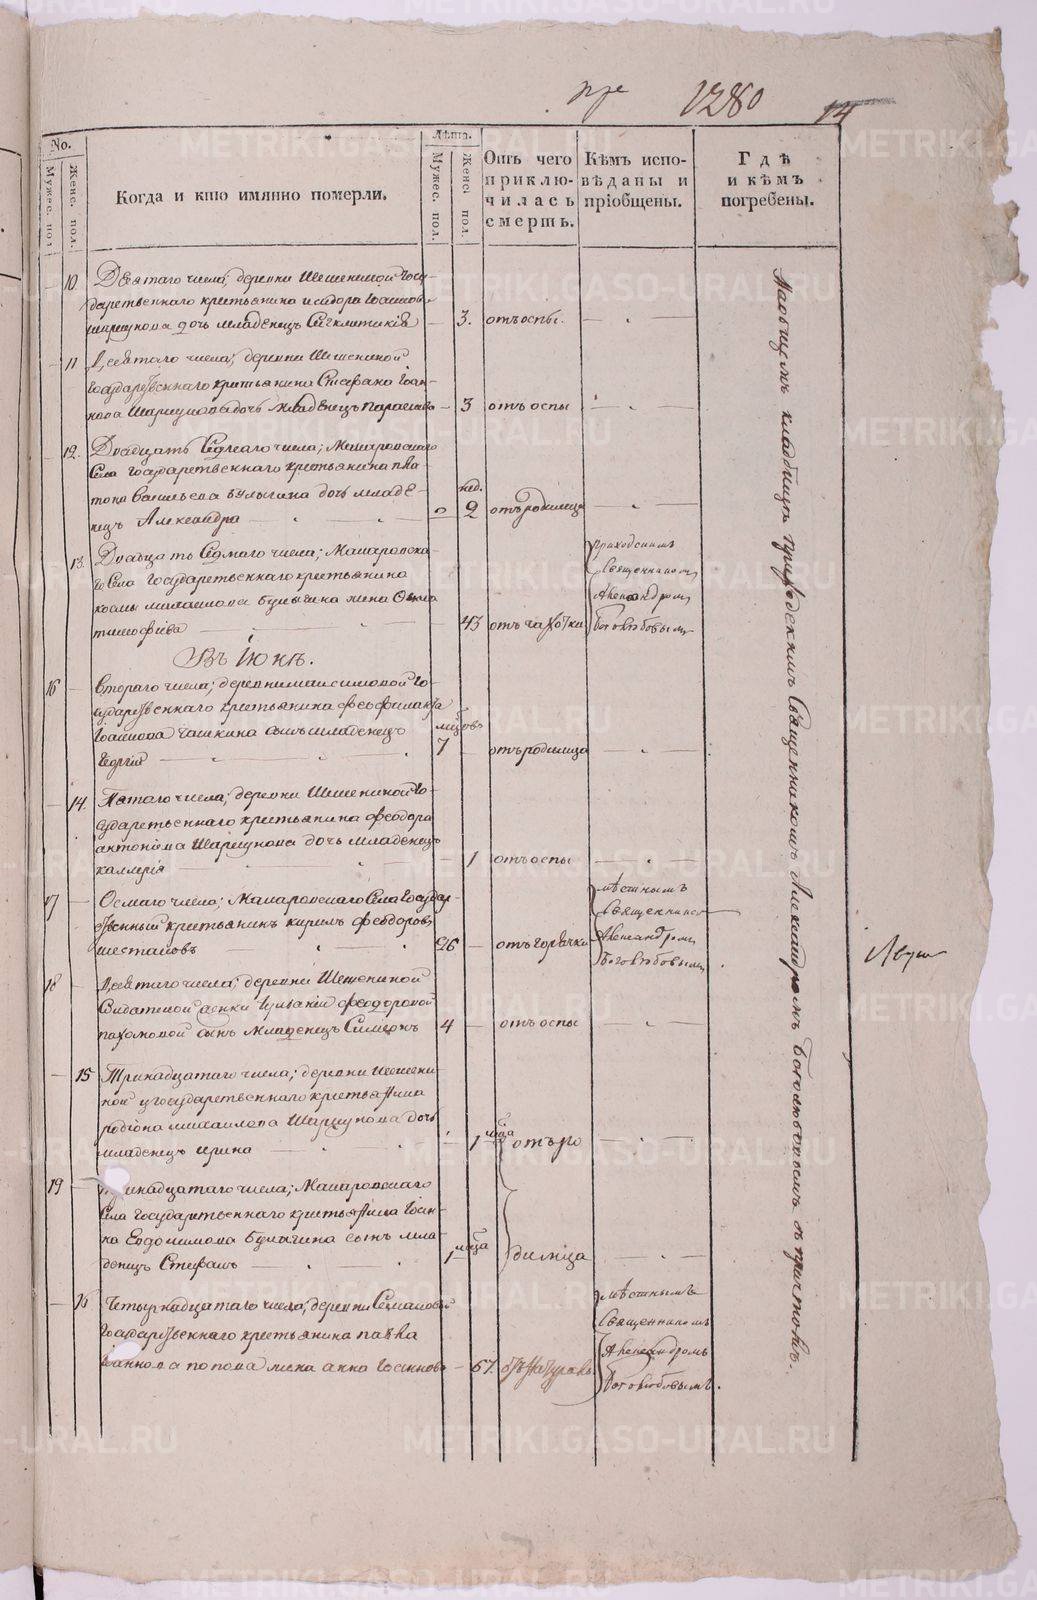 1280
14
No.
Мужес. пол
Женс. пол.
Когда и кто имянно померли.
Лѣта.
Мужес. пол.
Женс. пол.
Отъ чего
приклю-
чилась
смерть.
Кѣмъ испо-
вѣданы и
пріобщены.
Гдѣ
и кѣмъ
погребены.
10. Девятаго числа; деревни Шешениной Госу-
дарственнаго крестьянина Исидора Іоаннов
дочь младенецъ Сигклитикія — 3. отъ оспы.
11 Девятаго числа; деревни Шешениной
Государственнаго крестьянина Стефана Іоан-
нова дочь младенецъ Параскева — 3 отъ оспы
12. Двадцать Седмаго числа; Макаровскаго
Села Государственнаго крестьянина Пла-
тона Васильева Булыгина дочь младе-
нецъ Александра нед. 2 отъ родимца
13. Двадцать Седмаго числа; Макаровска-
го Села Государственнаго крестьянина
Козмы Булыгина жена
Тимофѣева 43 отъ чахотки
Приходскимъ
Священникомъ
Александромъ
Боголюбовымъ
Въ Іюнѣ.
16 Втораго числа; деревни Максимовой Го-
сударственнаго крестьянина Феофилакта
сынъ младенецъ
Георгій 7 мѣсяцовъ отъ родимца
14. Пятаго числа; деревни Шешениной Го-
сударственнаго крестьянина Феодора
Антонова дочь младенецъ
Каллерія 1 отъ оспы
17 Осмаго числа; Макаровскаго Села Государ-
ственный крестьянинъ Кирилъ Феодоровъ
Шестаковъ 26 отъ горячки
мѣстнымъ
Священнико
Александромъ
Боголюбовымъ
18 Девятаго числа; деревни Шешениной
Солдатской женки Феодоровой
Пахомовой сынъ младенецъ Симеонъ 4 отъ оспы
15 Тринадцатаго числа; деревни Шешени
ной Государственнаго крестьянина
Родіона Михаилова дочь
младенецъ Ирина 1 отъ ро
19 Тринадцатаго числа; Макаровскаго
Села Государственнаго крестьянина Іоан-
на Евдокимова Булыгина сынъ мла-
денецъ Стефанъ 1 димца
16 Четырнадцатаго числа, деревни
Государственнаго крестьянина Павла
Іоаннова Попова жена Анна Іоаннова 67.
мѣстнымъ
Священникомъ
Александромъ
Боголюбовымъ.
На общемъ кладбищѣ приходскимъ Священникомъ Александромъ Боголюбовымъ съ причтомъ.
METRIKI.GASO-URAL.RU